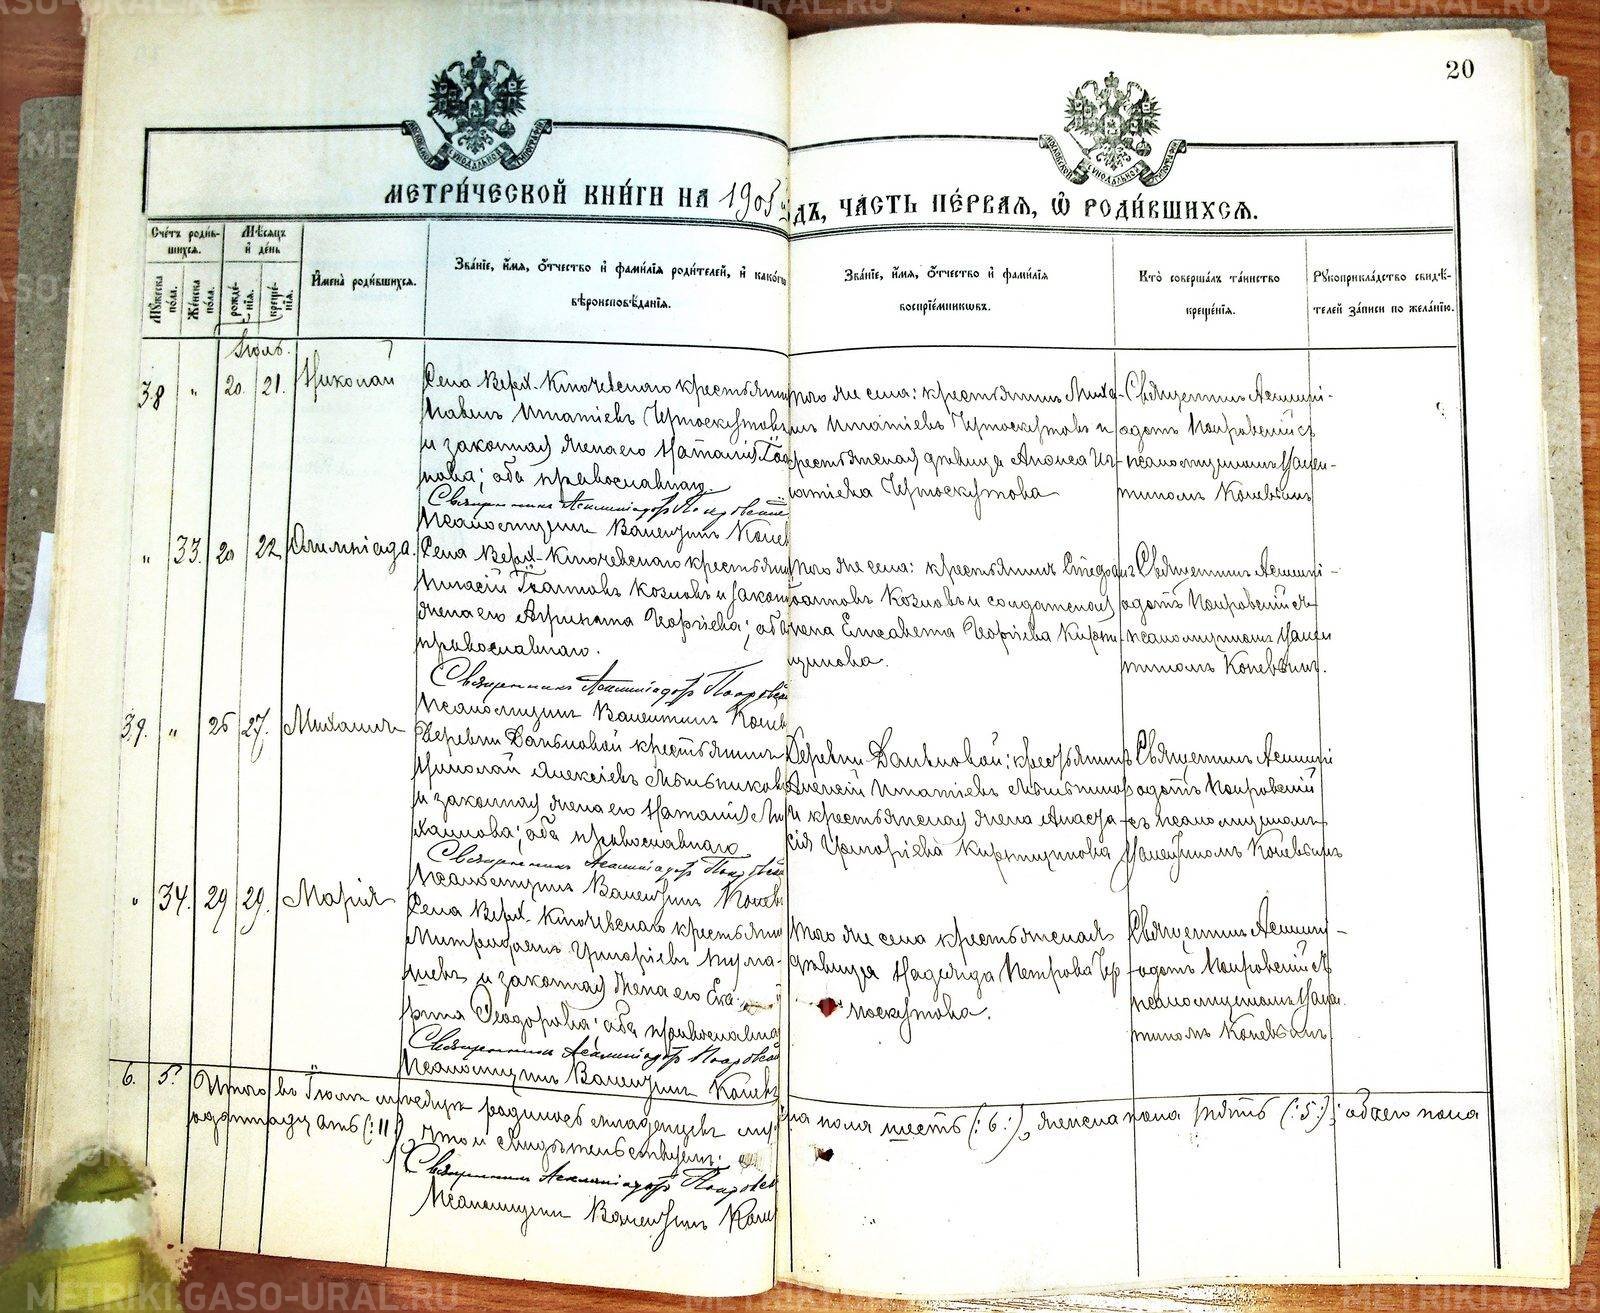 METRIKI.GASO-URAL.RU
20
МЕТРИ́ЧЕСКОЙ КНИ́ГИ НА 1905 ДЪ, ЧА́СТЬ ПЕ́РВАЯ, Ѡ РОДИ́ВШИХСЯ.
Сче́тъ роди́вшихся.
Му́жеска по́ла.
Же́нска по́ла.
Мѣ́сяцъ и де́нь
рожде́нія.
креще́нія.
Имена̀ роди́вшихся.
Зва́ніе, и́мя, о́тчество и фами́лія роди́телей, и како́го
вѣроисповѣ́данія.
Зва́ніе, и́мя, о́тчество и фами́лія
воспріе́мниковъ.
Кто̀ соверша́лъ та́инство
креще́нія.
Рукоприкла́дство свидѣ́-
телей за́писи по жела́нію.
Іюль.
38 " 20. 21. Николай
Села Верх-Ключевскаго крестьянин
Павелъ Игнатіевъ Черноскутовъ
и законная жена его Наталія Іоан
нова; оба православнаго
Священникъ Асклипіадотъ Покровскій
Псаломщикъ Валентинъ Конев
того же села: крестьянинъ Миха-
илъ Игнатіевъ Черноскутовъ и
крестьянская дѣвица Анисія Иг-
натіева Черноскутова
Священникъ Асклипі-
адотъ Покровскій съ
псаломщикомъ Вален-
тиномъ Коневымъ
" 33. 20 22. Олимпіада.
Села Верх-Ключевскаго крестьянин
Игнатій Іоанновъ Козловъ и закон
жена его Агрипина Георгіева; оба
православнаго.
Священникъ Асклипіадотъ Покровскій
Псаломщикъ Валентинъ Конев
того же села: крестьянинъ Стефанъ
Іоанновъ Козловъ и солдатская
жена Елисавета Георгіева Кирпи-
щикова.
Священникъ Асклипі-
адотъ Покровскій съ
псаломщикомъ Вален
тиномъ Коневымъ.
39. " 26 27. Михаилъ
Деревни Даньковой крестьянинъ
Николай Алексіевъ Мѣльников
и законная жена его Наталія Ми
хаилова; оба православнаго
Священникъ Асклипіадотъ Покровскій
Псаломщикъ Валентинъ Конев
Деревни Даньковой: крестьянинъ
Алексій Игнатіевъ Мѣльников
и крестьянская жена Анаста-
сія Григоріева Кирпищикова
Священникъ Асклипі
адотъ Покровскій
съ псаломщикомъ
Валентиномъ Коневымъ
" 34. 29 29. Марія
Села Верх-Ключевскаго крестьянин
Митрофанъ Григоріевъ Тума-
шевъ и законная жена его Ека
рина Ѳеодорова; оба православна
Священникъ Асклипіадотъ Покровскій
Псаломщикъ Валентинъ Конев
того же села крестьянская
дѣвица Надежда Петрова Чер
носкутова.
Священникъ Асклипі-
адотъ Покровскій съ
псаломщикомъ Вален
тиномъ Коневымъ
6. 5. Итого въ Іюлѣ мѣсяцѣ родилось младенцевъ му на пола шесть (:6:), женска пола пять (:5:); обоего пола
одиннадцать (:11:), что и свидѣтельствуемъ:
Священникъ Асклипіадотъ Покровск
Псаломщикъ Валентинъ Конев
METRIKI.GASO-URAL.RU